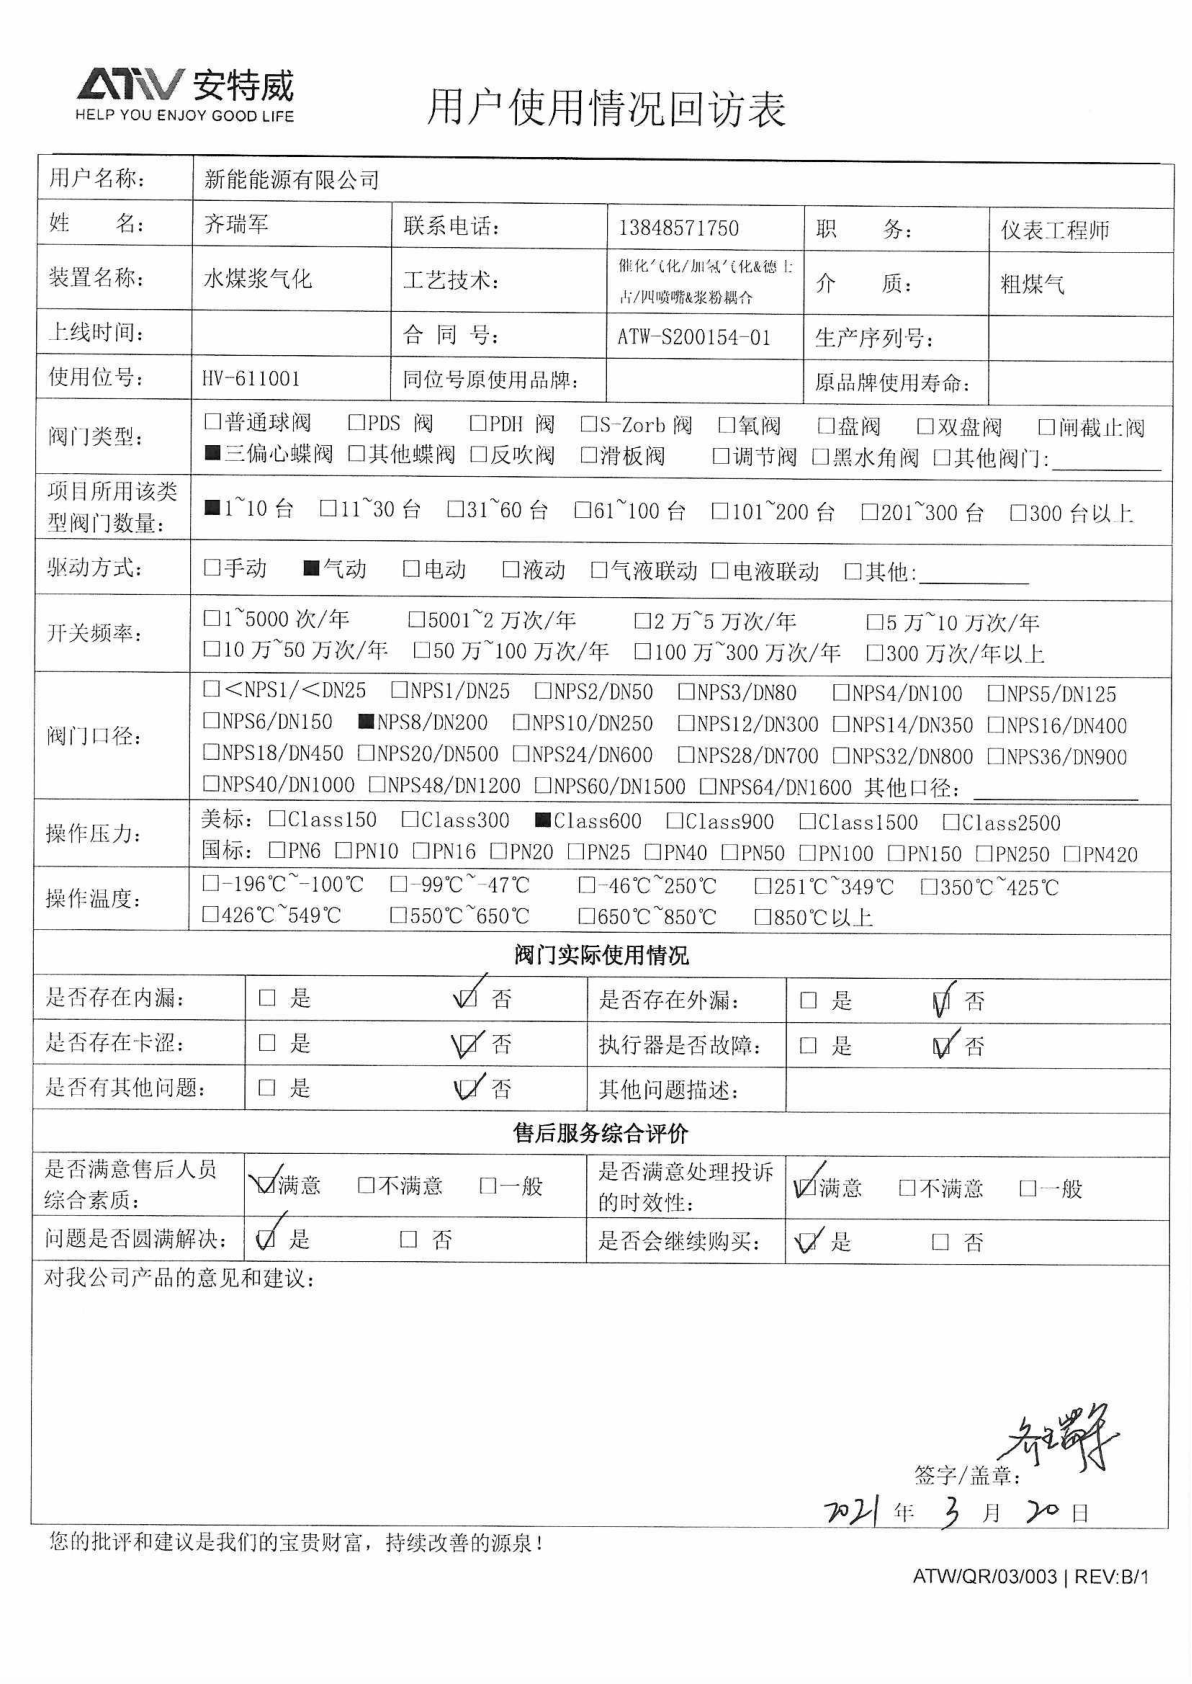 ATW 安特威
HELP YOU ENJOY GOOD LIFE
用户使用情况回访表
用户名称： 新能能源有限公司
姓 名： 齐瑞军 联系电话： 13848571750 职 务： 仪表工程师
装置名称： 水煤浆气化 工艺技术： 催化气化/加氢气化&德士古/四喷嘴&浆粉耦合 介 质： 粗煤气
上线时间： 合 同 号： ATW-S200154-01 生产序列号：
使用位号： HV-611001 同位号原使用品牌： 原品牌使用寿命：
阀门类型： □普通球阀 □PDS 阀 □PDH 阀 □S-Zorb 阀 □氧阀 □盘阀 □双盘阀 □闸截止阀
■三偏心蝶阀 □其他蝶阀 □反吹阀 □滑板阀 □调节阀 □黑水角阀 □其他阀门:
项目所用该类型阀门数量： ■1~10 台 □11~30 台 □31~60 台 □61~100 台 □101~200 台 □201~300 台 □300 台以上
驱动方式： □手动 ■气动 □电动 □液动 □气液联动 □电液联动 □其他:
开关频率： □1~5000 次/年 □5001~2 万次/年 □2 万~5 万次/年 □5 万~10 万次/年
□10 万~50 万次/年 □50 万~100 万次/年 □100 万~300 万次/年 □300 万次/年以上
阀门口径： □<NPS1/<DN25 □NPS1/DN25 □NPS2/DN50 □NPS3/DN80 □NPS4/DN100 □NPS5/DN125
□NPS6/DN150 ■NPS8/DN200 □NPS10/DN250 □NPS12/DN300 □NPS14/DN350 □NPS16/DN400
□NPS18/DN450 □NPS20/DN500 □NPS24/DN600 □NPS28/DN700 □NPS32/DN800 □NPS36/DN900
□NPS40/DN1000 □NPS48/DN1200 □NPS60/DN1500 □NPS64/DN1600 其他口径：
操作压力： 美标：□Class150 □Class300 ■Class600 □Class900 □Class1500 □Class2500
国标：□PN6 □PN10 □PN16 □PN20 □PN25 □PN40 □PN50 □PN100 □PN150 □PN250 □PN420
操作温度： □-196℃~-100℃ □-99℃~-47℃ □-46℃~250℃ □251℃~349℃ □350℃~425℃
□426℃~549℃ □550℃~650℃ □650℃~850℃ □850℃以上
阀门实际使用情况
是否存在内漏： □ 是 ☑ 否 是否存在外漏： □ 是 ☑ 否
是否存在卡涩： □ 是 ☑ 否 执行器是否故障： □ 是 ☑ 否
是否有其他问题： □ 是 ☑ 否 其他问题描述：
售后服务综合评价
是否满意售后人员综合素质： ☑满意 □不满意 □一般 是否满意处理投诉的时效性： ☑满意 □不满意 □一般
问题是否圆满解决： ☑ 是 □ 否 是否会继续购买： ☑ 是 □ 否
对我公司产品的意见和建议：
齐瑞军
签字/盖章：
2021 年 3 月 20 日
您的批评和建议是我们的宝贵财富，持续改善的源泉！
ATW/QR/03/003 | REV:B/1